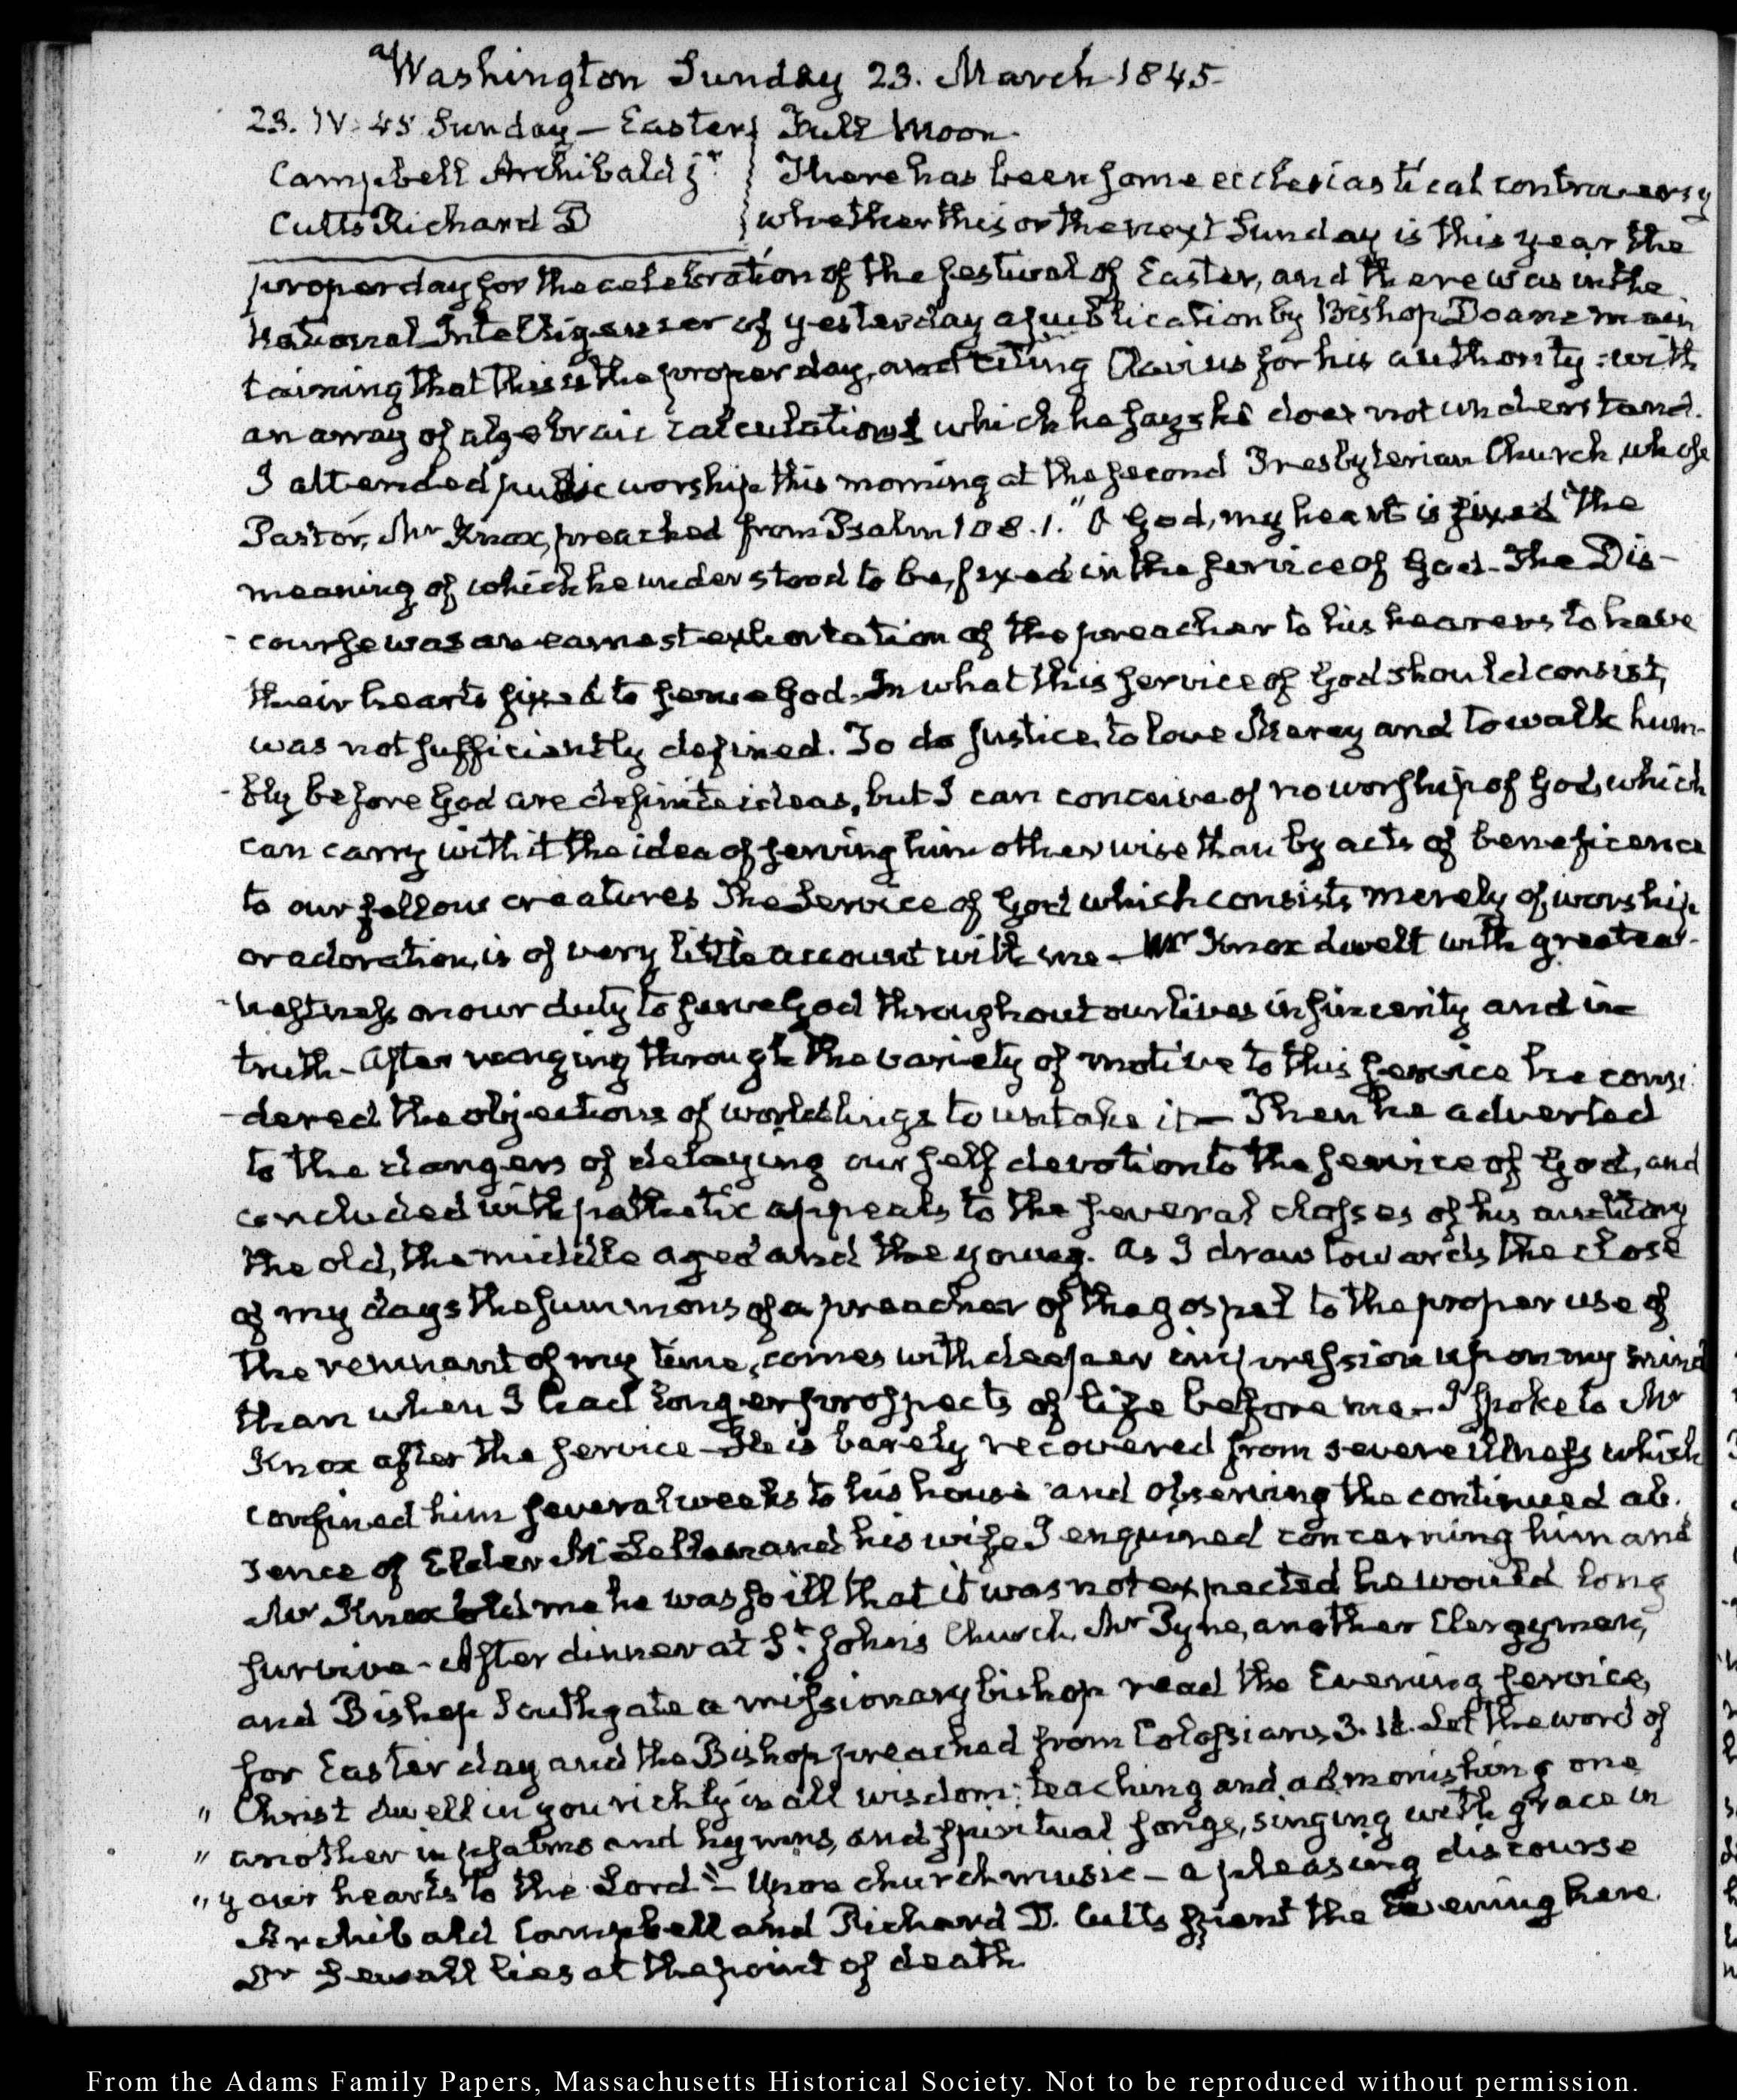 Washington Sunday 23. March 1845-
23. IV: 45 Sunday – Easter
Campbell Archibald jr
Cutts Richard D
Full Moon.
There has been some ecclesiastical controversy
whether this or the next Sunday is this year the
proper day for the celebration of the festival of Easter, and there was in the
National Intelligencer of yesterday a publication by Bishop Doane main
taining that this is the proper day, and citing Clavius for his authority: with
an array of algebraic calculations which he says he does not understand.
I attended public worship this morning at the second Presbyterian Church, whose
Pastor, Mr Knox, preached from Psalm 108.1. "O God, my heart is fixed" The
meaning of which he understood to be, fixed in the service of God. The Dis-
-course was an earnest exhortation of the preacher to his hearers to have
their hearts fixed to serve God. In what this service of God should consist,
was not sufficiently defined. To do justice, to love Mercy and to walk hum-
-bly before God are definite ideas, but I can conceive of no worship of God, which
can carry with it the idea of serving him otherwise than by acts of beneficence
to our fellow creatures The Service of God which consists merely of worship
or adoration, is of very little account with me – Mr Knox dwelt with great ear-
-nestness on our duty to serve God throughout our lives in sincerity and in
truth – After ranging through the variety of motive to this service he consi
-dered the objections of worldlings to untake it – Then he adverted
to the dangers of delaying our self devotion to the service of God, and
concluded with pathetic appeals to the several classes of his auditory
the old, the middle aged and the young. As I draw towards the close
of my days the summons of a preacher of the gospel to the proper use of
the remnant of my time, comes with deeper impression upon my mind
than when I had longer prospects of life before me – I spoke to Mr
Knox after the service – He is barely recovered from severe illness which
confined him several weeks to his house and observing the continued ab.
sence of Elder and his wife I enquired concerning him and
Mr Knox told me he was so ill that it was not expected he would long
survive – After dinner at St. John's Church, Mr Pyne, another Clergyman,
and Bishop Southgate a missionary bishop read the Evening service,
for Easter day and the Bishop preached from Colossians 3. Let the word of
" Christ dwell in you richly in all wisdom; teaching and admonishing one
" another in psalms and hymns, and spiritual songs, singing with grace in
" your hearts to the Lord" – Upon church music – a pleasing discourse
Archibald Campbell and Richard D. Cutts spent the Evening here.
Dr Sewall lies at the point of death.
From the Adams Family Papers, Massachusetts Historical Society. Not to be reproduced without permission.